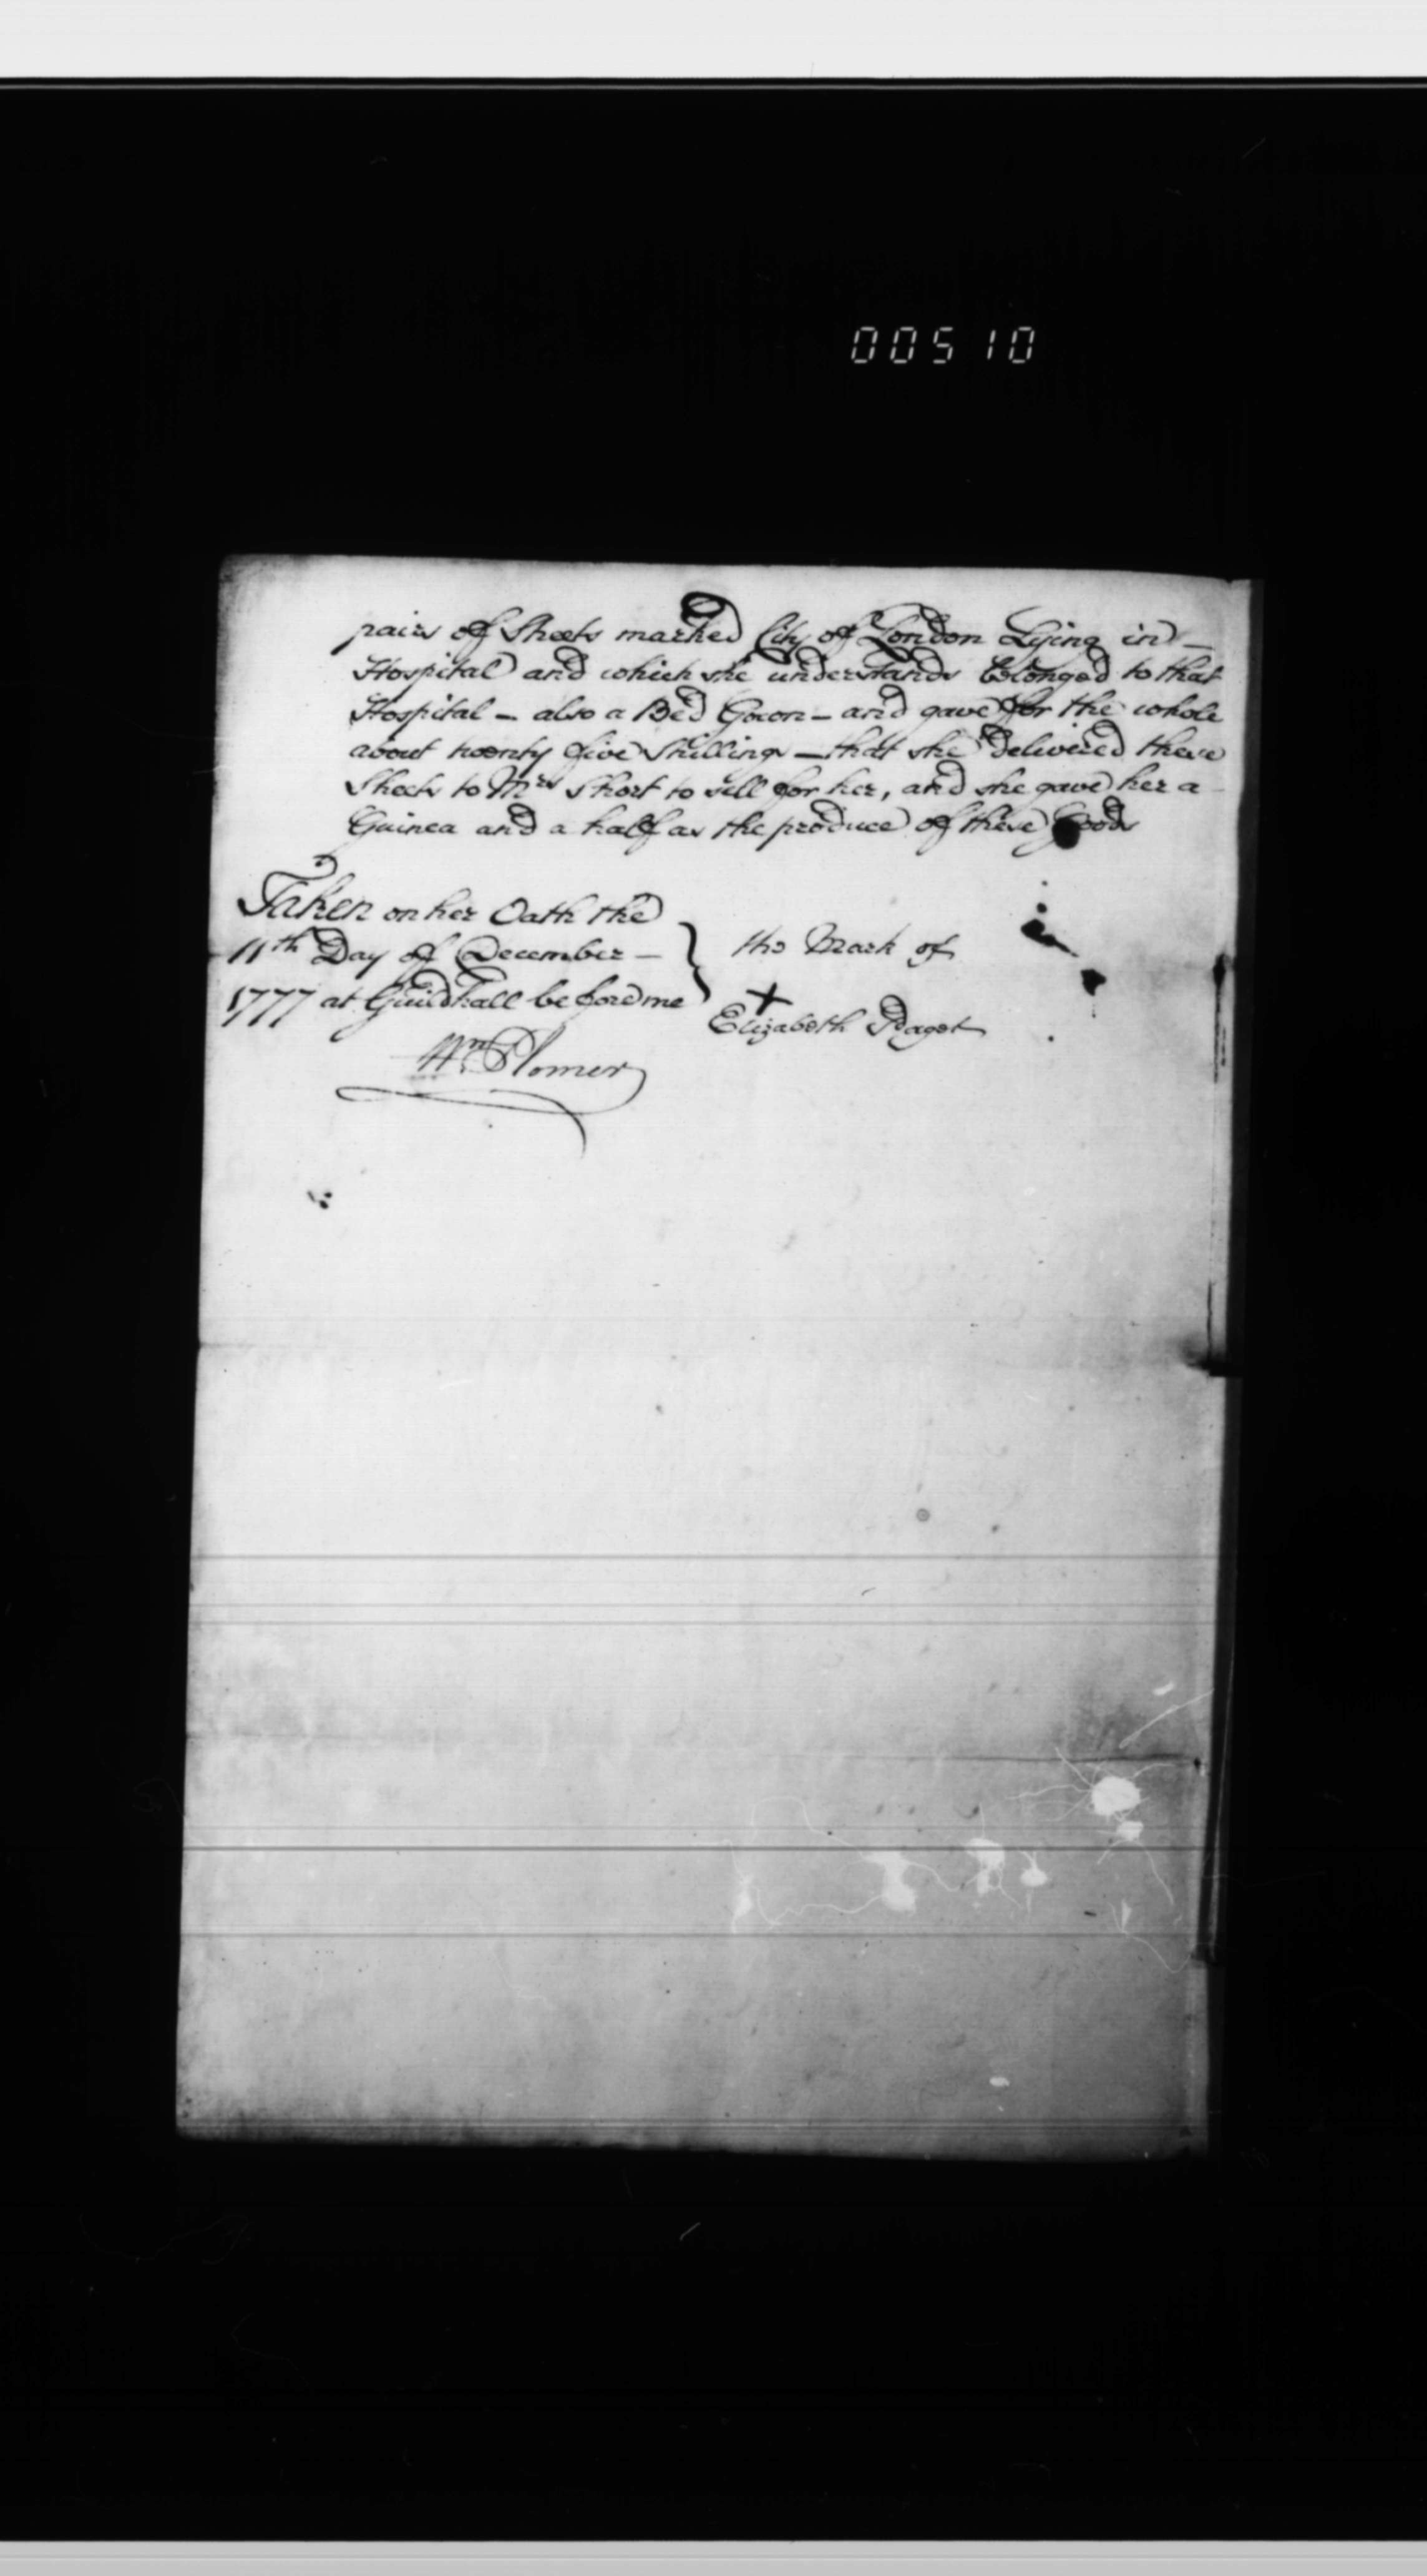 00510
pairs of Sheets marked City of London Lying in —
Hospital and which she understands belonged to that
Hospital — also a Bed Gown — and gave for the whole
about twenty five Shillings — that she delivered these
Sheets to Mrs Short to sell for her, and she gave her a
Guinea and a half as the produce of these Goods
Taken on her Oath the
11th Day of December —
1777 at Guildhall before me
Wm Plomer
the Mark of
X
Elizabeth Paget